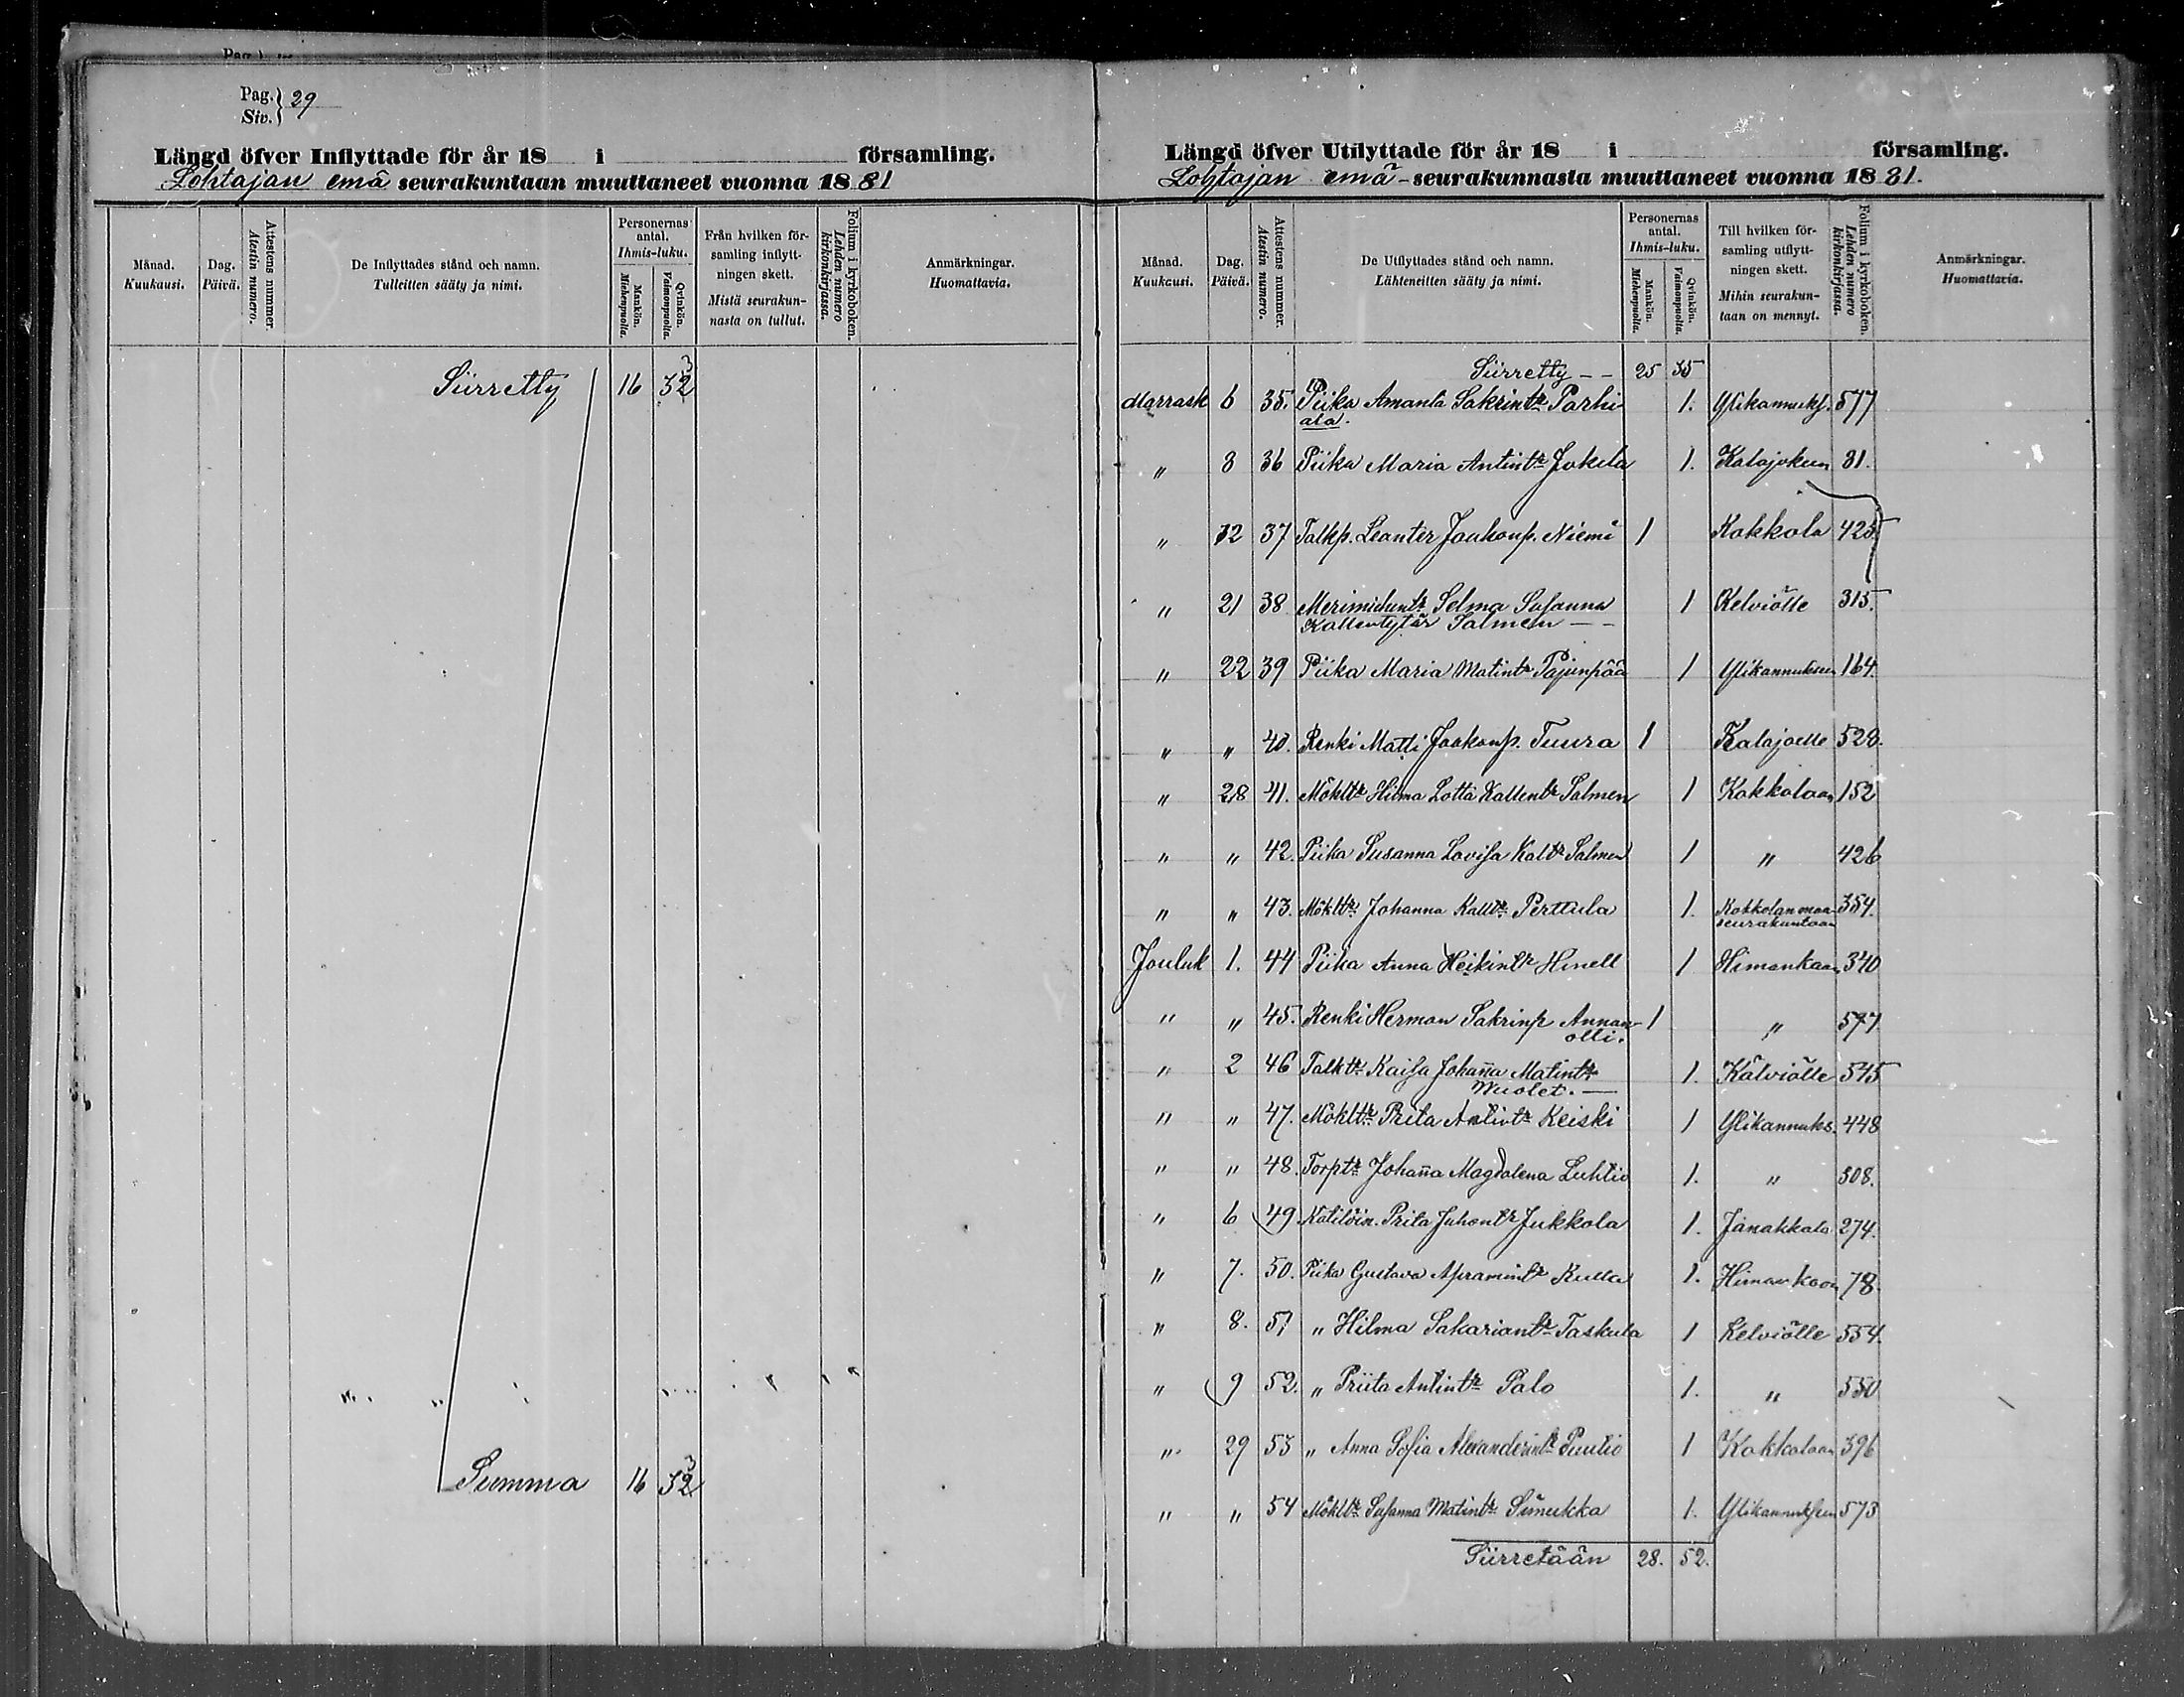 Pag.
Siv. } 29
Längd öfver Inflyttade för år 18 i församling.
Lohtajan emä seurakuntaan muuttaneet vuonna 1881
Månad. Kuukausi.
Dag. Päivä.
Attestens nummer. Atestin numero.
De Inflyttades stånd och namn. Tulleitten sääty ja nimi.
Personernas antal. Ihmis-luku.
Mankön. Miehenpuolta.
Qvinkön. Vaimonpuolta.
Från hvilken församling inflyttningen skett. Mistä seurakunnasta on tullut.
Folium i kyrkoboken. Lehden numero kirkonkirjassa.
Anmärkningar. Huomattavia.
Siirretty 16 32 3
Summa 16 32 3
Längd öfver Utflyttade för år 18 i församling.
Lohtajan emä-seurakunnasta muuttaneet vuonna 1881.
Månad. Kuukausi.
Dag. Päivä.
Attestens nummer. Atestin numero.
De Utflyttades stånd och namn. Lähteneitten sääty ja nimi.
Personernas antal. Ihmis-luku.
Mankön. Miehenpuolta.
Qvinkön. Vaimonpuolta.
Till hvilken församling utflyttningen skett. Mihin seurakuntaan on mennyt.
Folium i kyrkoboken. Lehden numero kirkonkirjassa.
Anmärkningar. Huomattavia.
Siirretty -- 25 35
Marrask 6 35. Piika Amanta Sakrintr Parhi 1. Ylikannuks. 577
ala.
" 8 36 Piika Maria Antintr Jokela 1. Kalajokeen 81.
" 12 37 Talkp. Leanter Jaakonp. Niemi 1 Kokkola 425
" 21 38. Selma Susanna 1 Kelviölle 315.
Kallentytär Salmen --
" 22 39 Piika Maria Matintr Pajunpää 1 Ylikannuksen 164.
" " 40. Renki Matti Jaakonp. Tuura 1 Kalajoelle 528.
" 28 41. Mökltr Hilma Lotta Kallentr Salmen 1 Kokkolaan 152
" " 42. Piika Susanna Lovisa Kaltr Salmen 1 " 426
" " 43. Mökltr Johanna Kalltr Perttula 1. Kokkolan maa- 354.
seurakuntaan
Jouluk 1. 44 Piika Anna Heikintr Hinell 1 Himankaan 340
" " 45. Renki Herman Sakrinp Annan- 1 " 577
olli.
" 2 46 Talktr Kaisa Johanna Matintr 1. Kälviölle 545
Wuolet. —
" " 47. Mökltr Priita Antintr Keiski 1 Ylikannuks. 448
" " 48. Torptr Johanna Magdalena Luhtio 1. " 308.
" 6 49. Kätilöin. Priita Juhontr Jukkola 1. Janakkala 274.
" 7. 50. Piika Gustava Apramintr Kulla 1. Himankaan 78.
" 8. 51 " Hilma Sakariantr Taskula 1 Kelviölle 554.
" 9 52. " Priita Antintr Palo 1. " 550
" 29 53 " Anna Sofia Alexanderintr Puutio 1 Kokkolaan 396
" " 54 Mökltr Susanna Matintr Simukka 1. Ylikannuksen 573
Siirretään 28. 52.